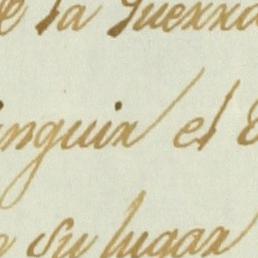 e la Guerra
inguir el
su lugar